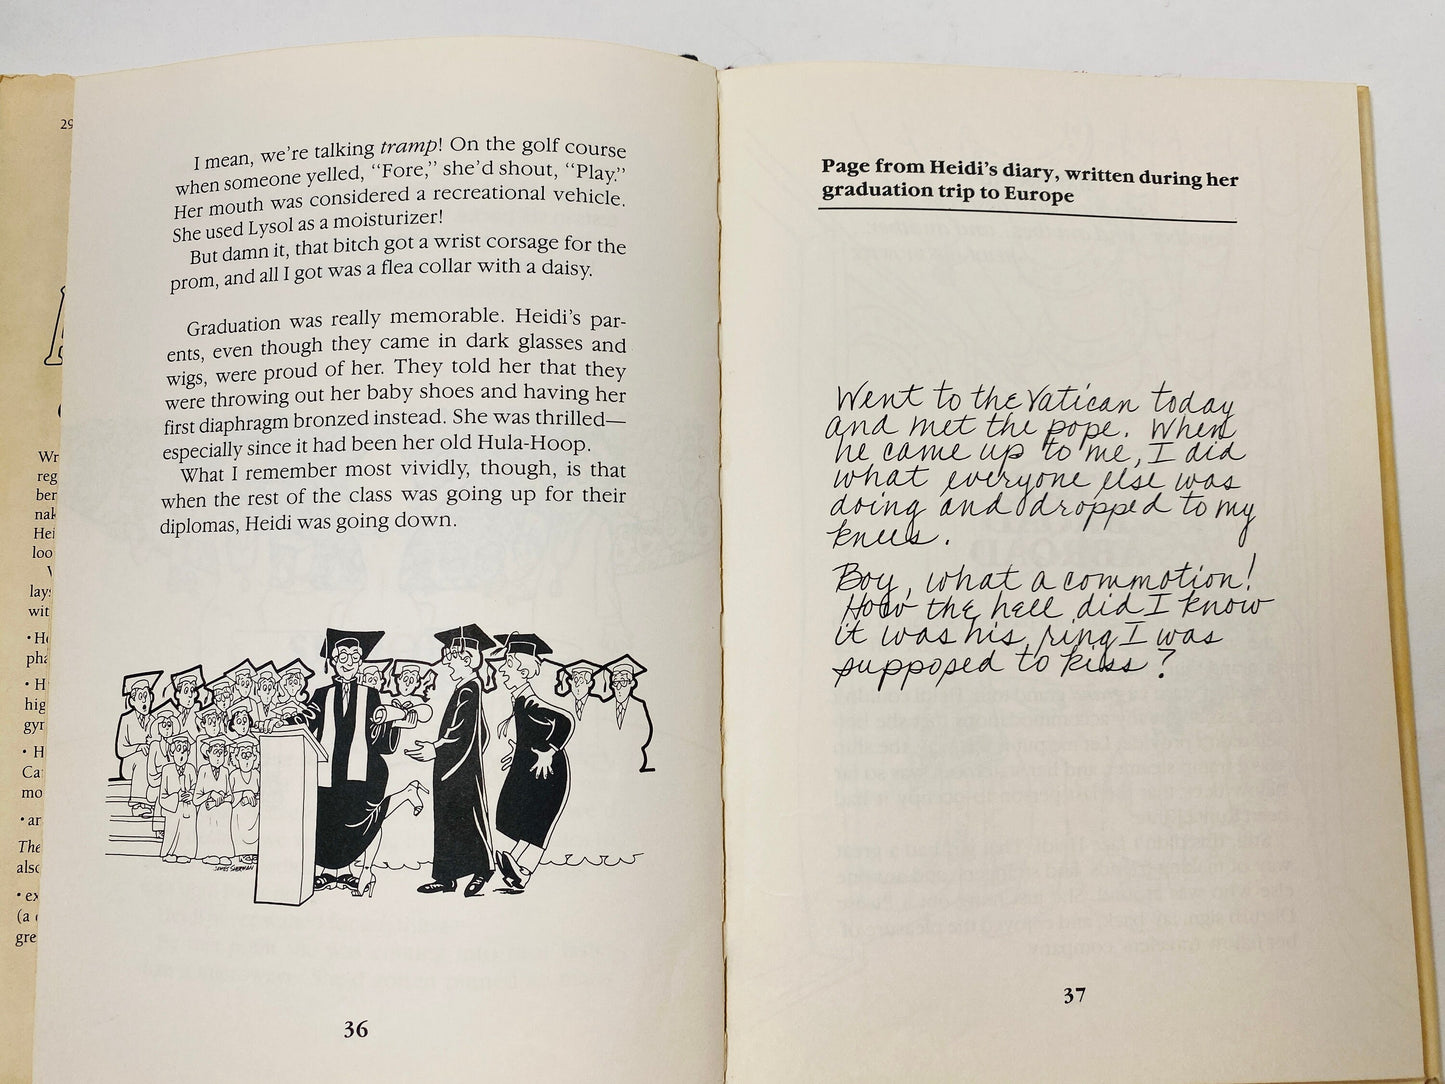 29
Wr
reg
ber
nak
Hei
loo
lays
wit
• He
pha
• H
hig
gyr
• H
Cat
mo
• an
The
also
• ex
(a
gre
I mean, we're talking tramp! On the golf course
when someone yelled, “Fore,” she'd shout, “Play.”
Her mouth was considered a recreational vehicle.
She used Lysol as a moisturizer!
But damn it, that bitch got a wrist corsage for the
prom, and all I got was a flea collar with a daisy.
Graduation was really memorable. Heidi's par-
ents, even though they came in dark glasses and
wigs, were proud of her. They told her that they
were throwing out her baby shoes and having her
first diaphragm bronzed instead. She was thrilled—
especially since it had been her old Hula-Hoop.
What I remember most vividly, though, is that
when the rest of the class was going up for their
diplomas, Heidi was going down.
JAMES SHERMAN
36
Page from Heidi's diary, written during her
graduation trip to Europe
Went to the Vatican today
and met the pope. When
he came up to me, I did
what everyone else was
doing and dropped to my
knees.
Boy, what a commotion!
How the hell did I know
it was his ring I was
supposed to kiss?
37